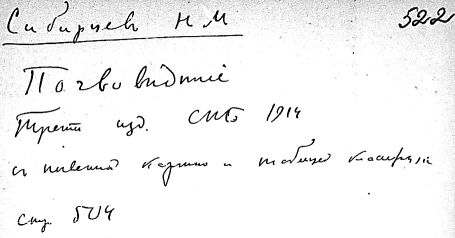 Сибирцев Н М 522
Почвовѣдѣніе
Третье изд. СПБ 1914
съ почвенной картою и таблицей
стр. 504